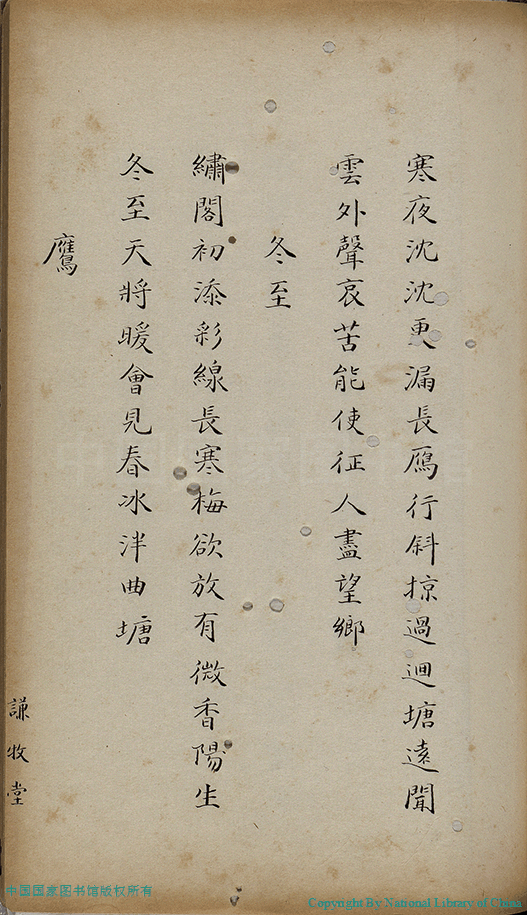 寒夜沈沈更漏長鴈行斜掠過迴塘遠聞
雲外聲哀苦能使征人盡望鄉
冬至
繡閣初添彩線長寒梅欲放有微香陽生
冬至天將暖會見春冰泮曲塘
鷹
謙牧堂
中国国家图书馆版权所有
Copyright By National Library of China